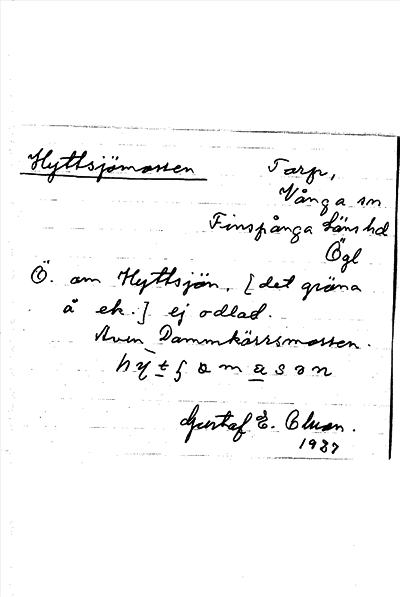 Hyttsjömossen
Torp,
Vånga sn
Finspånga läns hd
Ögl
Ö. om Hyttsjön, [det gröna
å ek.] ej odlad.
Även Dammkärrsmossen.
Gustaf E. Cluson.
1937